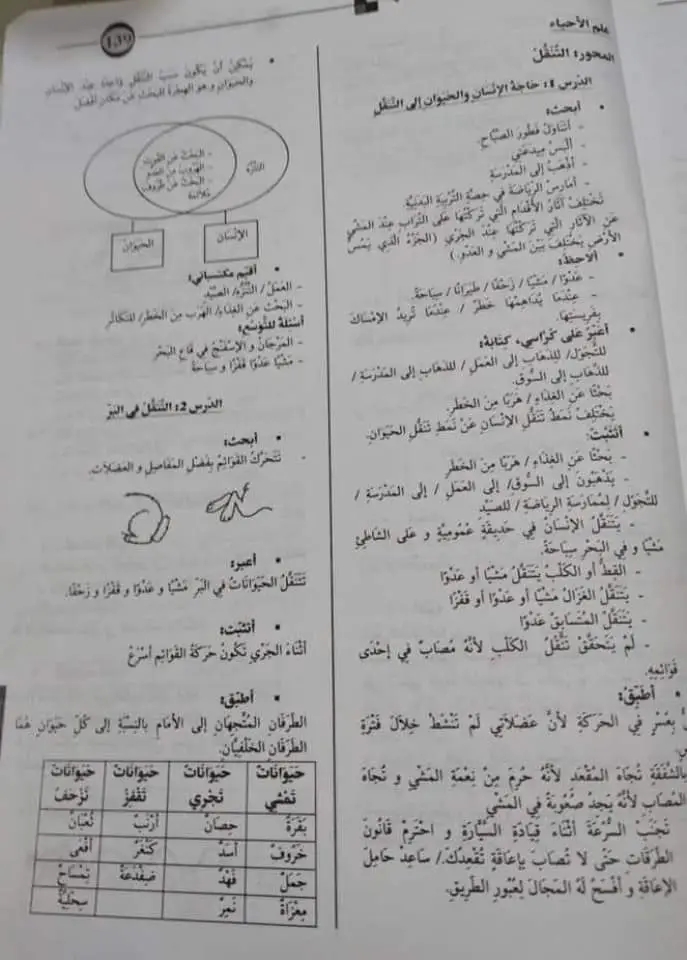 علم الأحياء
المحور: التنقل
الدرس 1: حاجة الإنسان والحيوان إلى التنقل
• أبحث:
- أتناول فطور الصباح.
- ألبس ميدعتي
- أذهب إلى المدرسة
- أمارس الرياضة في حصة التربية البدنية
تختلف آثار الأقدام التي تركتها على التراب عند المشي
عن الآثار التي تركتها عند الجري (الجزء الذي يمس
الأرض يختلف بين المشي و العدو.)
• ألاحظ:
- عدوا / مشيا / زحفا / طيرانا / سباحة.
- عندما يداهمها خطر / عندما تريد الإمساك
بفريستها.
• أعبر على كراسي، كتابة:
للتجول/ للذهاب إلى العمل/ للذهاب إلى المدرسة /
للذهاب إلى السوق.
بحثا عن الغذاء/ هربا من الخطر.
يختلف نمط تنقل الإنسان عن نمط تنقل الحيوان.
• أتثبت:
- بحثا عن الغذاء / هربا من الخطر
- يذهبون إلى السوق/ إلى العمل / إلى المدرسة /
للتجول / لممارسة الرياضة / للصيد
- يتنقل الإنسان في حديقة عمومية و على الشاطئ
مشيا و في البحر سباحة.
- القط أو الكلب يتنقل مشيا أو عدوا
- يتنقل الغزال مشيا أو عدوا أو قفزا
- يتنقل المتسابق عدوا
- لم يتحقق تنقل الكلب لأنه مصاب في إحدى
قوائمه.
• أطبق:
بعسر في الحركة لأن عضلاتي لم تنشط خلال فترة
بالشفقة تجاه المقعد لأنه حرم من نعمة المشي و تجاه
المصاب لأنه يجد صعوبة في المشي
تجنب السرعة أثناء قيادة السيارة و احترم قانون
الطرقات حتى لا تصاب بإعاقة تقعدك./ ساعد حامل
الإعاقة و أفسح له المجال لعبور الطريق.
139
• يمكن أن يكون سبب التنقل واحدا عند الإنسان
والحيوان و هو الهجرة للبحث عن مكان أفضل
التنزه
- البحث عن القوت
- الهروب من الخطر
- البحث عن ظروف
ملائمة
الإنسان
الحيوان
• أقيم مكتسباتي:
- العمل/ التنزه/ الصيد
- البحث عن الغذاء/ الهرب من الخطر/ للتكاثر
أسئلة للتوسع:
- المرجان و الإسفنج في قاع البحر
- مشيا عدوا قفزا و سباحة
الدرس 2: التنقل في البر
• أبحث:
- تتحرك القوائم بفضل المفاصل و العضلات.
• أعبر:
تتنقل الحيوانات في البر مشيا و عدوا و قفزا و زحفا.
• أتثبت:
أثناء الجري تكون حركة القوائم أسرع
• أطبق:
الطرفان المتجهان إلى الأمام بالنسبة إلى كل حيوان هما
الطرفان الخلفيان.
حيوانات تمشي حيوانات تجري حيوانات تقفز حيوانات تزحف
بقرة حصان أرنب ثعبان
خروف أسد كنغر أفعى
جمل فهد ضفدعة تمساح
معزاة نمر سحلية